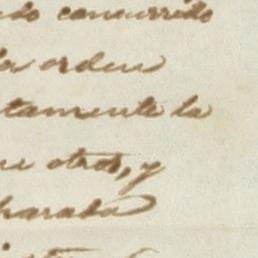 do concurrido
la orden
tamente la
ue otros, y
parada